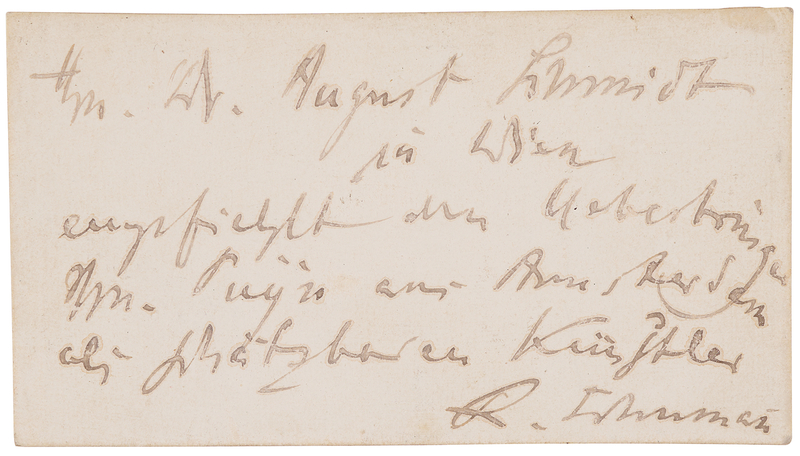 Hrn. Dr. August Schmidt
in Wien
empfiehlt den Ueberbringer
Hrn. aus Amsterdam
als schätzbaren Künstler
R. Schumann